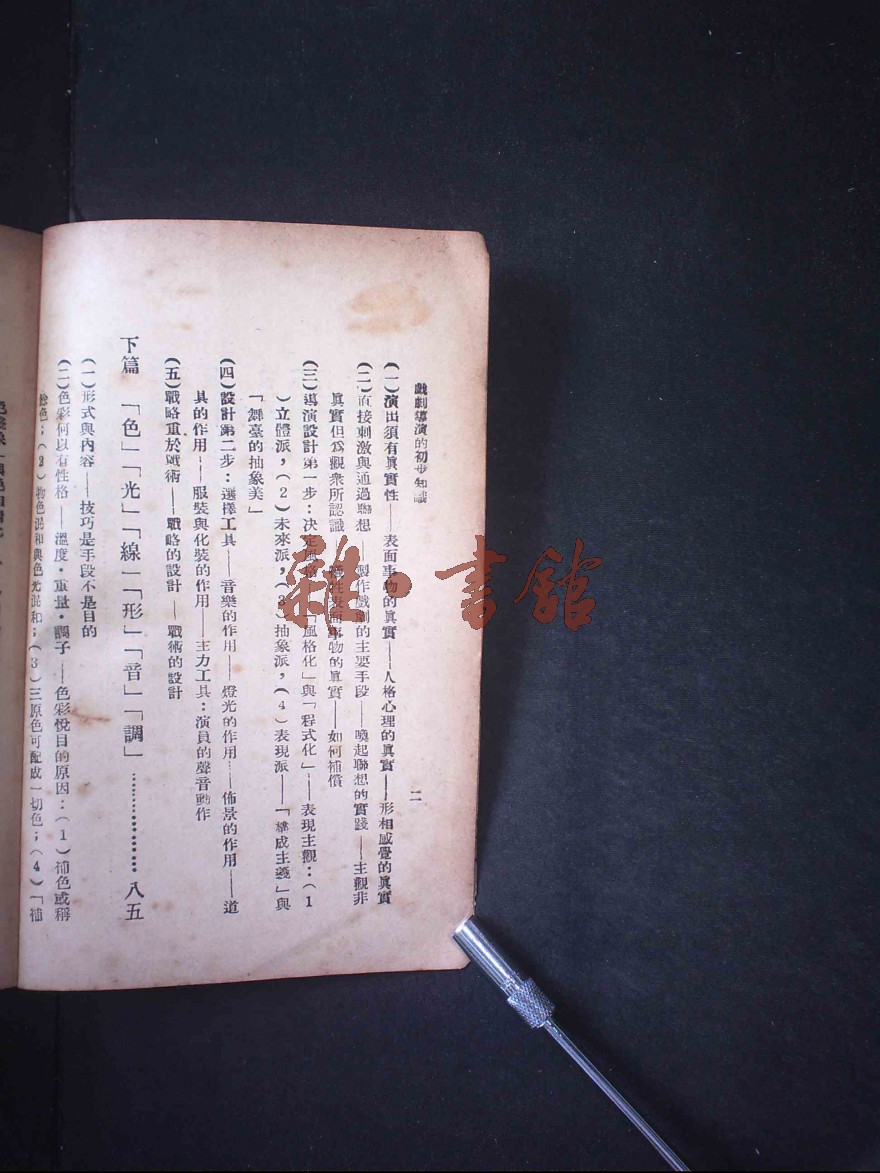 戲劇導演的初步知識
二
(一)演出須有眞實性——表面事物的眞實——人格心理的眞實——形相感覺的眞實
(二)直接刺激與通過聯想——製作戲劇的主要手段——喚起聯想的實踐——主觀非
眞實但爲觀衆所認識 事物的眞實——如何補償
(三)導演設計第一步:決定風格「風格化」與「程式化」——表現主觀:(1
)立體派,(2)未來派,(3)抽象派,(4)表現派——「構成主義」與
「舞臺的抽象美」
(四)設計第二步:選擇工具——音樂的作用——燈光的作用——佈景的作用——道
具的作用——服裝與化裝的作用——主力工具:演員的聲音動作
(五)戰略重於戰術——戰略的設計——戰術的設計
下篇 「色」「光」「線」「形」「音」「調」……………八五
(一)形式與內容——技巧是手段不是目的
(二)色彩何以有性格——溫度・重量・調子——色彩悅目的原因:(1)補色或稱
色;(2)物色混和與色光混和;(3)三原色可配成一切色;(4)「補
雜・書館